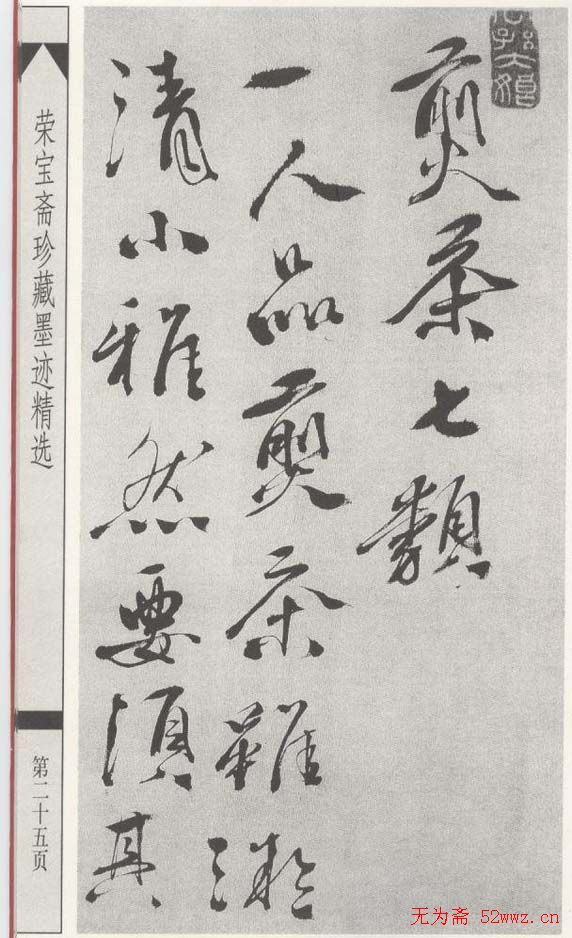 煎茶七類
一人品煎茶雖凝
清小雅然要須其
荣宝斋珍藏墨迹精选
第二十五页
无为斋 52wwz.cn